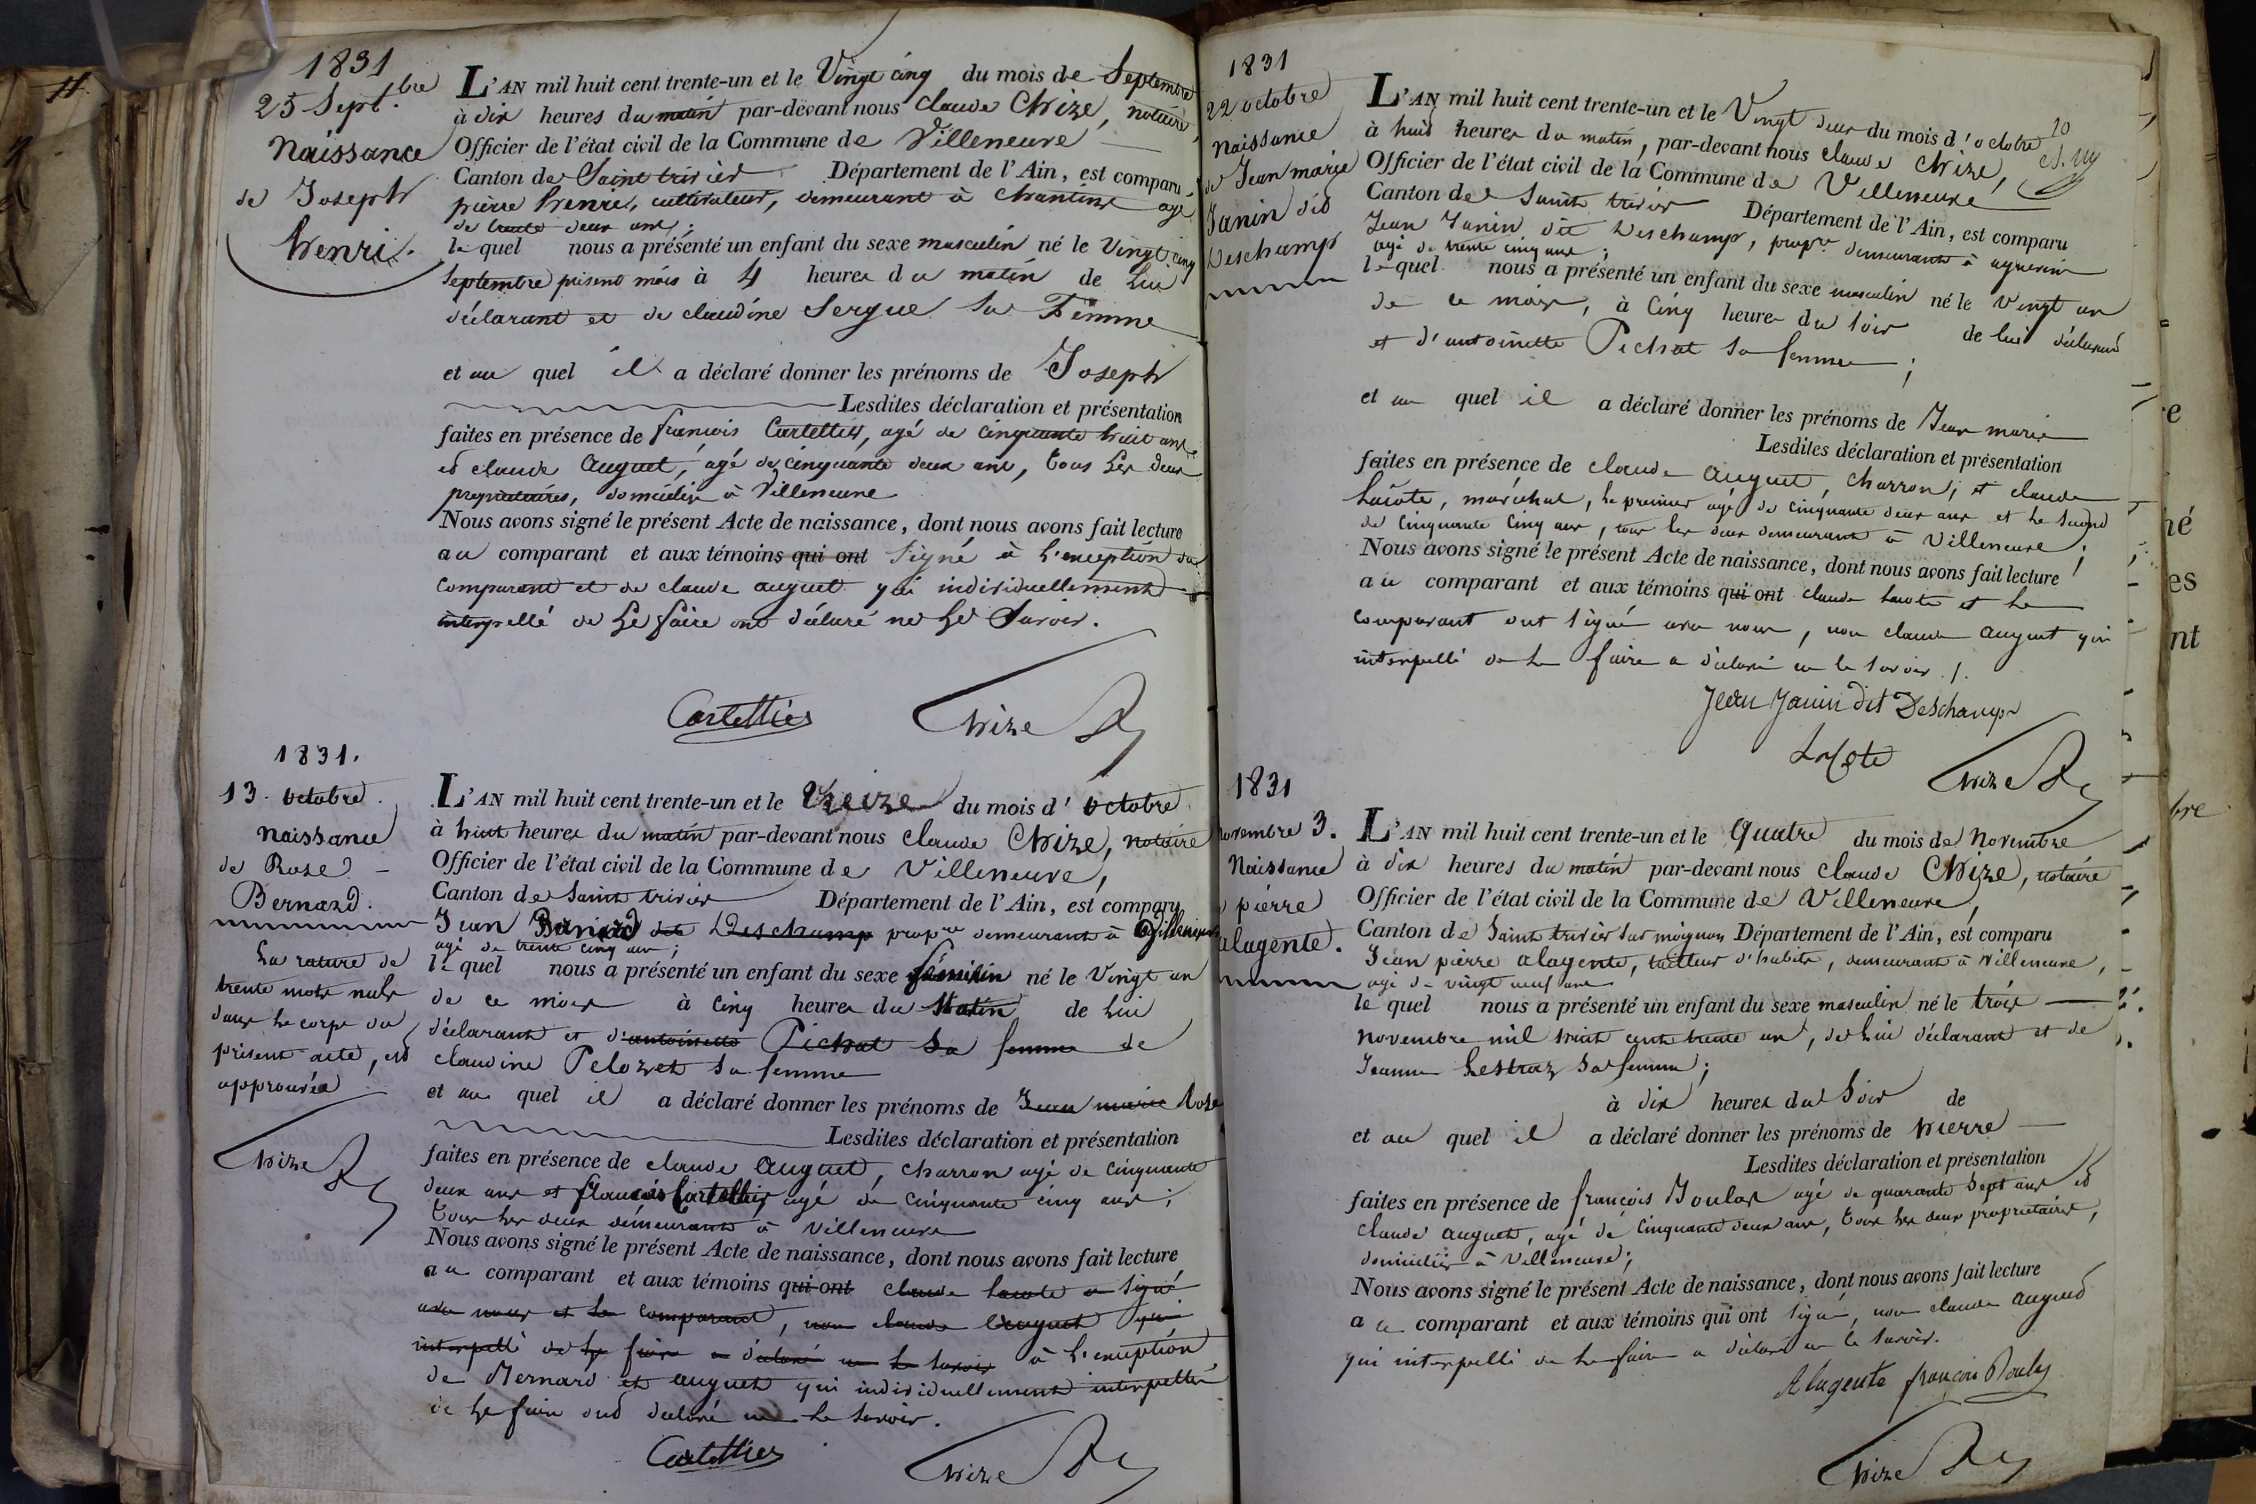 1831
25 Sept.bre
Naissance
de Joseph
henri.
L'AN mil huit cent trente-un et le Vingt cinq du mois de Septembre
à dix heures du matin par-devant nous Claude Chize, notaire,
Officier de l'état civil de la Commune de Villeneuve
Canton de Saint trivier Département de l'Ain, est comparu
pierre henri, cultivateur, demeurant à Chantins agé
de trente deux ans;
le quel nous a présenté un enfant du sexe masculin né le Vingt cinq
Septembre présent mois à 4 heures du matin de Lui
déclarant et de claudine Sergue sa Femme
et au quel il a déclaré donner les prénoms de Joseph
Lesdites déclaration et présentation
faites en présence de françois Cartellier, agé de cinquante huit ans
et claude Auguet, agé de cinquante deux ans, tous les deux
propriétaires, domiciliés à Villeneuve
Nous avons signé le présent Acte de naissance, dont nous avons fait lecture
au comparant et aux témoins qui ont signé à l'exception du
comparant et de claude auguet qui individuellement
interpellé de le faire ont déclaré ne le Savoir.
Cartellier Chize
1831.
13 octobre.
Naissance
de Rose
Bernard.
La rature de
trente mots nuls
dans le corps du
présent acte, est
approuvée
Chize
L'AN mil huit cent trente-un et le treize du mois d'octobre
à huit heures du matin par-devant nous claude Chize, notaire
Officier de l'état civil de la Commune de Villeneuve,
Canton de Saint trivier Département de l'Ain, est comparu
Jean Bernard dit Deschamp prop.re demeurant à
agé de trente cinq ans;
le quel nous a présenté un enfant du sexe féminin né le Vingt un
de ce mois à cinq heures du Matin de lui
déclarant et d'antoinette Pichat sa femme de
claudine Pelozet sa femme
et au quel il a déclaré donner les prénoms de Jean marie Rose
Lesdites déclaration et présentation
faites en présence de claude Auguet, charron agé de cinquante
deux ans et françois Cartellier agé de cinquante cinq ans;
tous les deux demeurants à Villeneuve
Nous avons signé le présent Acte de naissance, dont nous avons fait lecture
au comparant et aux témoins qui ont claude Lacote a signé
avec nous et le comparant, non claude Auguet qui
interpellé de le faire a déclaré ne le savoir à l'exception
de Bernard et auguet qui individuellement interpellés
de le faire ont déclaré ne le savoir.
Cartellier Chize
1831
22 octobre
Naissance
de Jean marie
Janin dit
Deschamps
L'AN mil huit cent trente-un et le Vingt deux du mois d'octobre
à huit heures du matin, par-devant nous claude Chize,
Officier de l'état civil de la Commune de Villeneuve
Canton de Saint trivier Département de l'Ain, est comparu
Jean Janin dit Deschamps, prop.re demeurant à
agé de trente cinq ans;
le quel nous a présenté un enfant du sexe masculin né le Vingt un
de ce mois, à Cinq heures du soir de lui déclarant
et d'antoinette Pichat sa femme;
et au quel il a déclaré donner les prénoms de Jean marie
Lesdites déclaration et présentation
faites en présence de claude Auguet, charron, et claude
Lacote, maréchal, le premier agé de cinquante deux ans et le second
de cinquante cinq ans, tous les deux demeurants à Villeneuve;
Nous avons signé le présent Acte de naissance, dont nous avons fait lecture
au comparant et aux témoins qui ont claude Lacote et le
comparant ont signé avec nous, non claude Auguet qui
interpellé de le faire a déclaré ne le savoir.
Jean Janin dit Deschamps
Lacote
Chize
1831
novembre 3.
Naissance
pierre
alagente.
L'AN mil huit cent trente-un et le Quatre du mois de Novembre
à dix heures du matin par-devant nous claude Chize, notaire
Officier de l'état civil de la Commune de Villeneuve,
Canton de Saint trivier sur moignans Département de l'Ain, est comparu
Jean pierre alagente, tailleur d'habits, demeurant à Villeneuve,
agé de vingt neuf ans
le quel nous a présenté un enfant du sexe masculin né le trois
Novembre mil huit cent trente un, de lui déclarant et de
Jeanne Lestraz sa femme;
à dix heures du Soir de
et au quel il a déclaré donner les prénoms de Pierre
Lesdites déclaration et présentation
faites en présence de françois Boulas agé de quarante Sept ans et
claude Auguet, agé de cinquante deux ans, tous les deux propriétaires,
domiciliés à Villeneuve;
Nous avons signé le présent Acte de naissance, dont nous avons fait lecture
au comparant et aux témoins qui ont signé, non claude Auguet
qui interpellé de le faire a déclaré ne le savoir.
Alagente françois Boulas
Chize